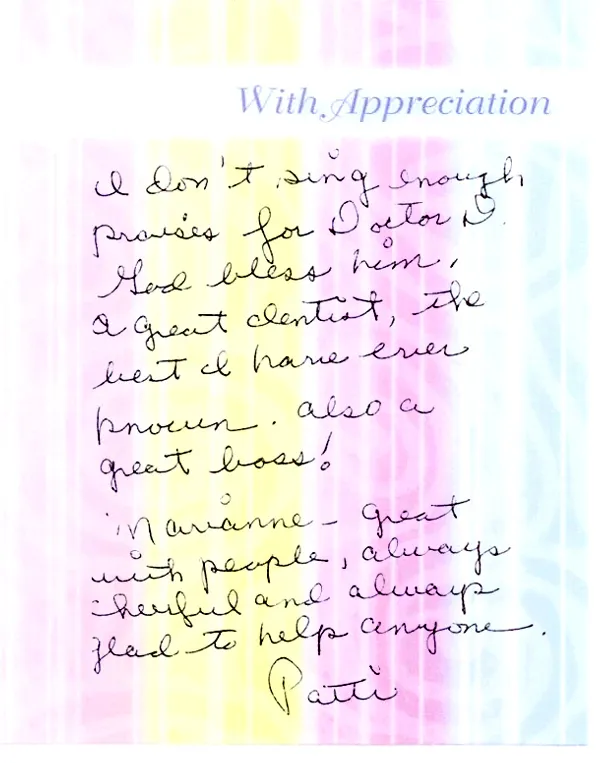 With Appreciation
I don't sing enough
praises for Doctor D.
God bless him,
a great dentist, the
best I have ever
known. also a
great boss!
Marianne - great
with people, always
cheerful and always
glad to help anyone.
Patti